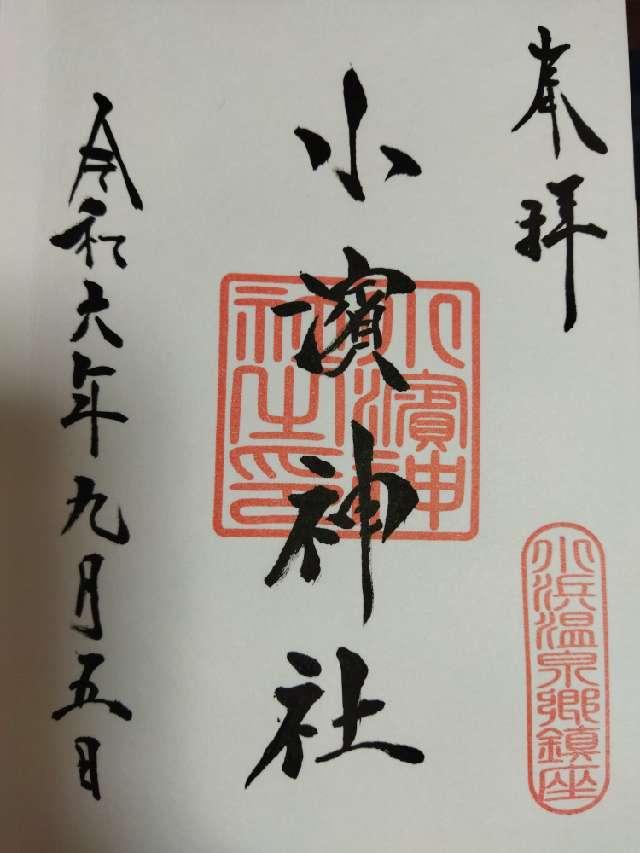 奉拝
小浜温泉郷鎮座
小濱神社
小濱神社之印
令和六年九月五日